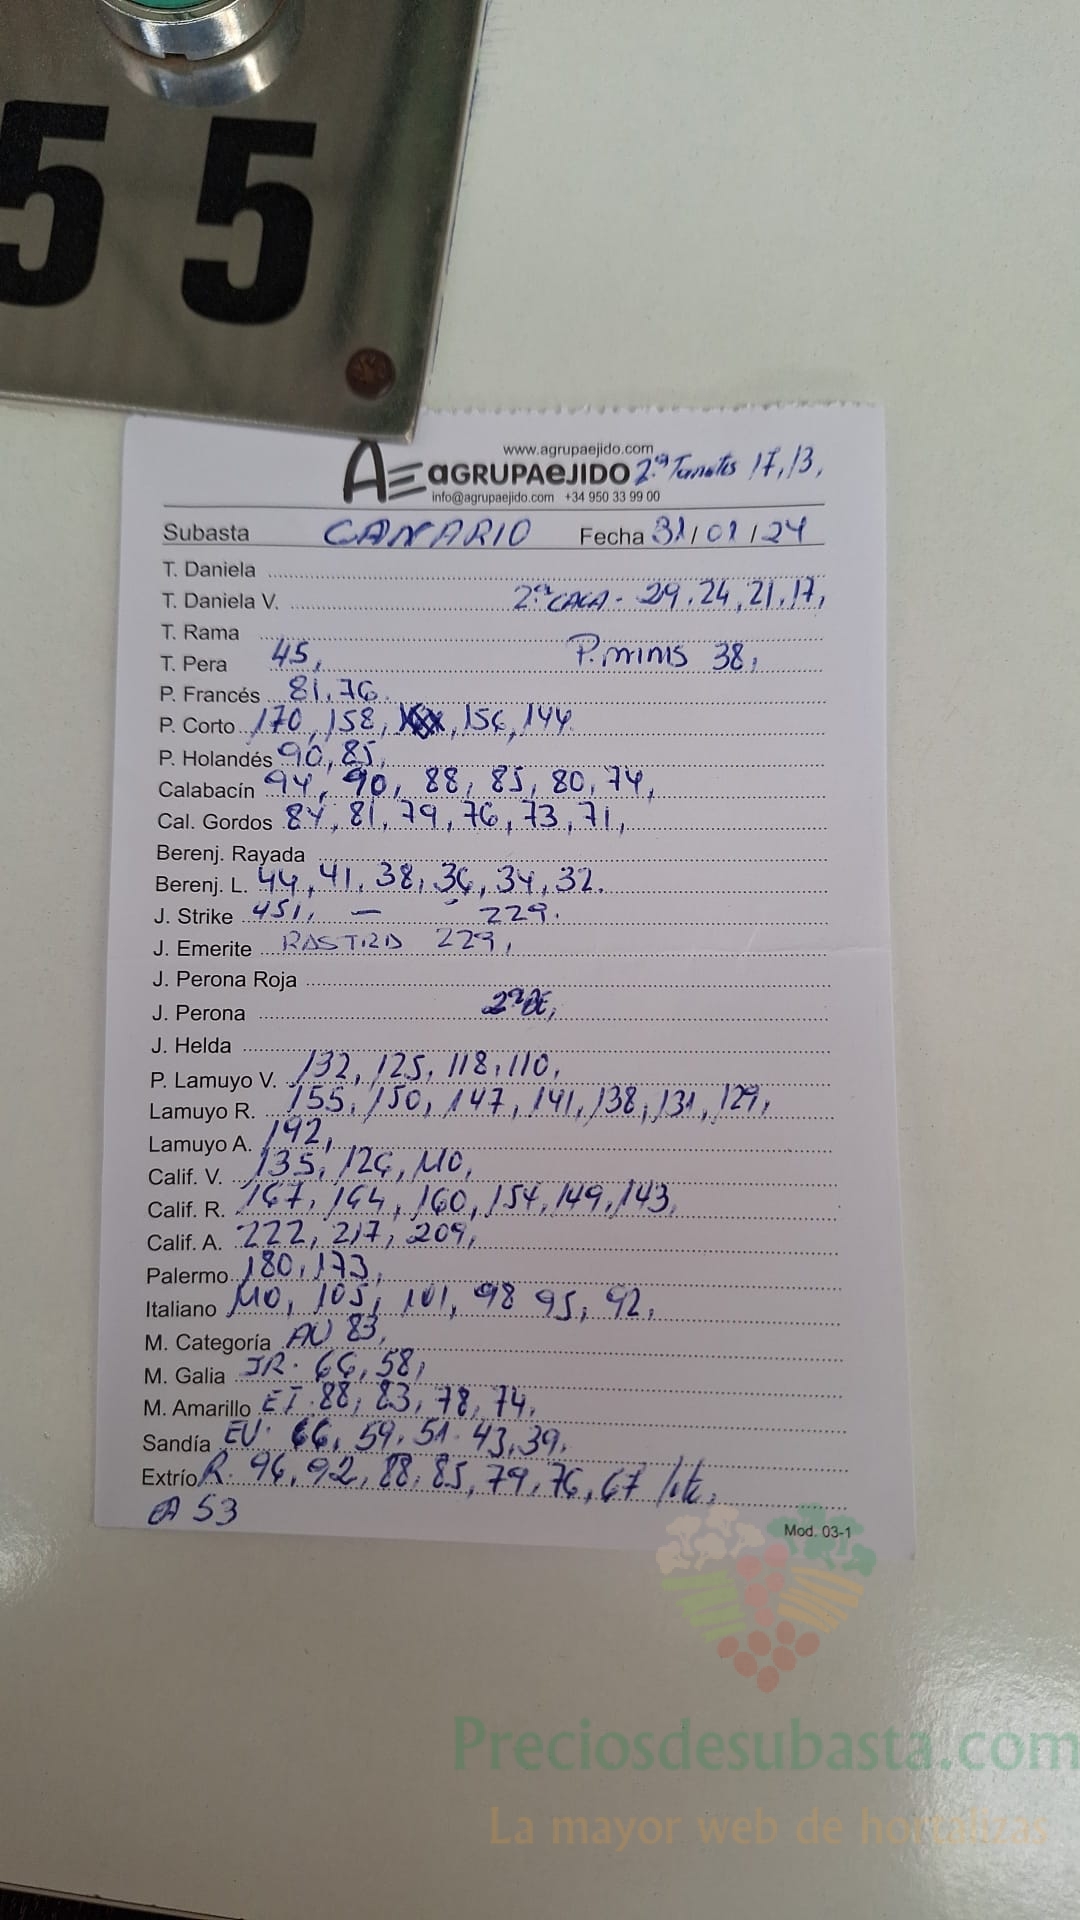 55
www.agrupaejido.com
AE aGRUPAeJIDO 2ª Tomates 17, 13,
info@agrupaejido.com +34 950 33 99 00
Subasta CANARIO Fecha 31/01/24
T. Daniela
T. Daniela V. 2ª CACA - 29, 24, 21, 17,
T. Rama
T. Pera 45, P. minis 38,
P. Francés 81, 76.
P. Corto 170, 158, 156, 144
P. Holandés 90, 85,
Calabacín 94, 90, 88, 85, 80, 74,
Cal. Gordos 84, 81, 79, 76, 73, 71,
Berenj. Rayada
Berenj. L. 44, 41, 38, 36, 34, 32.
J. Strike 451, — 229.
J. Emerite RASTRA 229,
J. Perona Roja
J. Perona 2ª DE,
J. Helda
P. Lamuyo V. 132, 125, 118, 110,
Lamuyo R. 155, 150, 147, 141, 138, 131, 129,
Lamuyo A. 192,
Calif. V. 135, 126, 110,
Calif. R. 167, 164, 160, 154, 149, 143,
Calif. A. 222, 217, 209,
Palermo 180, 173,
Italiano 110, 105, 101, 98 95, 92,
M. Categoría AU 83,
M. Galia JR. 66, 58,
M. Amarillo ET 88, 83, 78, 74,
Sandía EU. 66, 59, 51. 43, 39,
Extrío R. 96, 92, 88, 85, 79, 76, 67
A 53
Mod. 03-1
Preciosdesubasta.com
La mayor web de hortalizas